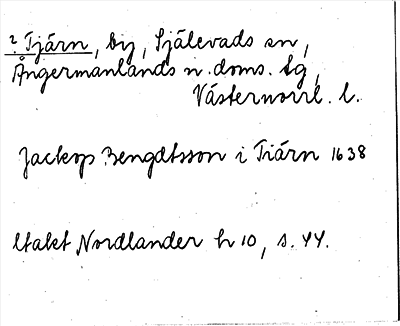 ? Tjärn, by, Själevads sn,
Ångermanlands n. doms. tg,
Västernorrl. l.
Jackops Bengdtsson i Tiärn 1638
Utakt Nordlander h 10, s. 44.